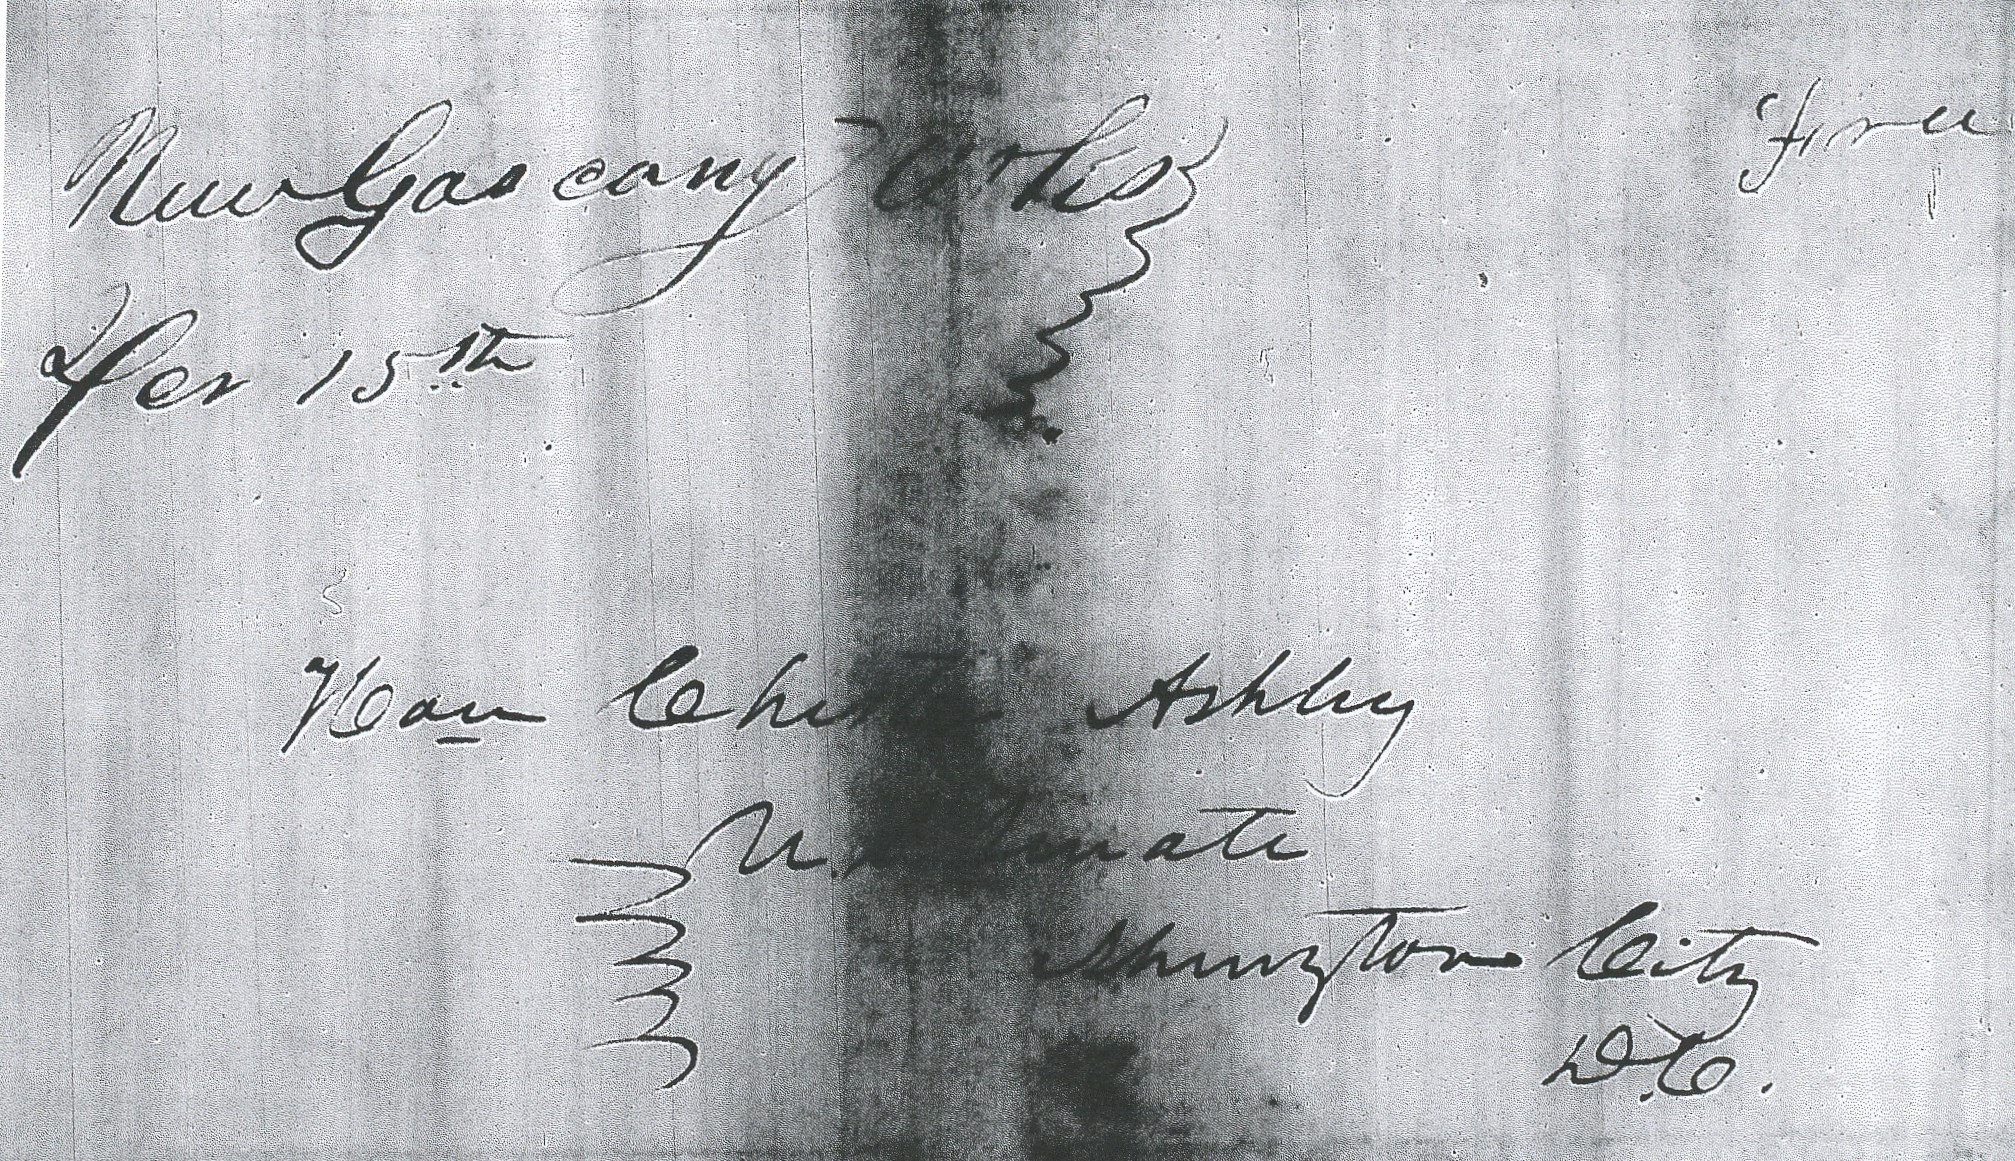 New Gascany Arks Free
Fer 15th
Hon Chest Ashley
U.S. Senate
shington City
D.C.